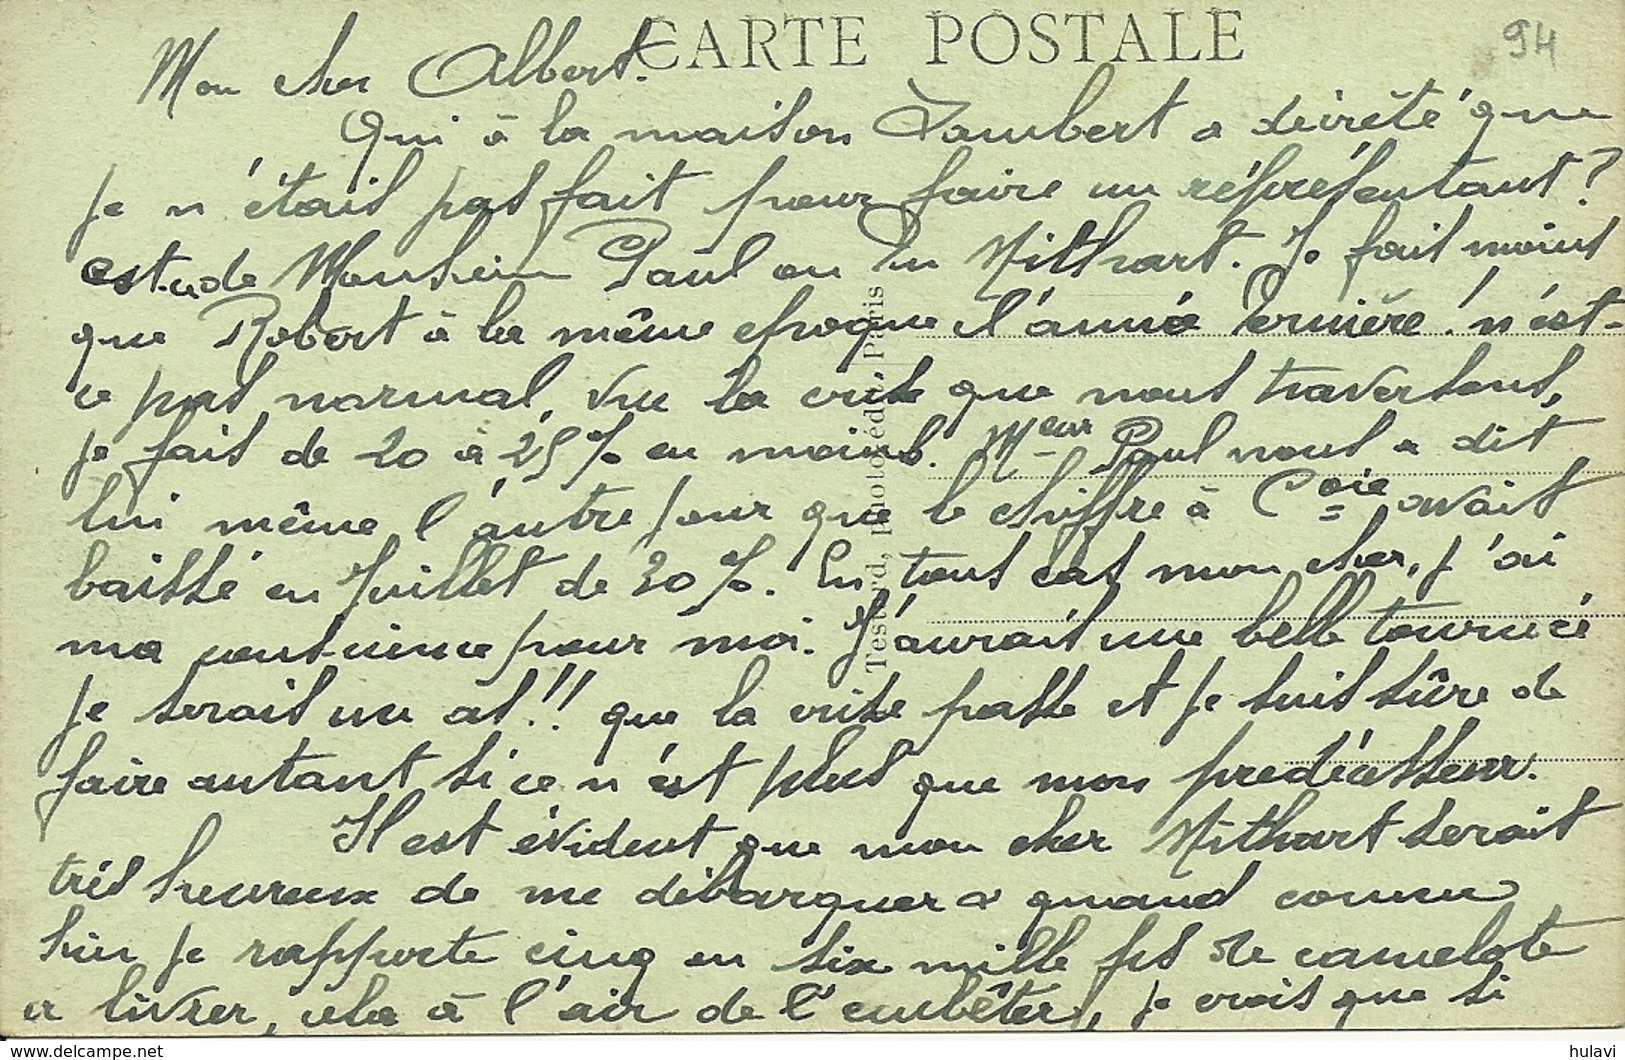 CARTE POSTALE
94
Mon cher Albert.
Qui à la maison Lambert a décrété que
je n'étais pas fait pour faire un réprésentant?
est-ce de Monsieur Paul ou Nithart. Je fais moins
que Robert à la même epoque l'année dernière! n'est-
ce pas normal, vu la crise que nous traversons,
je fais de 20 à 25% en moins. Meur Paul nous a dit
lui même l'autre jour que le chiffre à Coie avait
baissé en Juillet de 20%. En tous cas mon cher, j'ai
ma conscience pour moi. J'aurais une belle tournéé
je serais un as!! que la crise passe et je suis sûre de
faire autant si ce n'est plus que mon predécesseur.
Il est évident que mon cher Nithart serait
très heureux de me débarquer quand comme
hier je rapporte cinq ou six mille frs de camelote
a livrer, cela à l'air de l'embêter, je crois que si
Testard, photoédit, Paris
hulavi